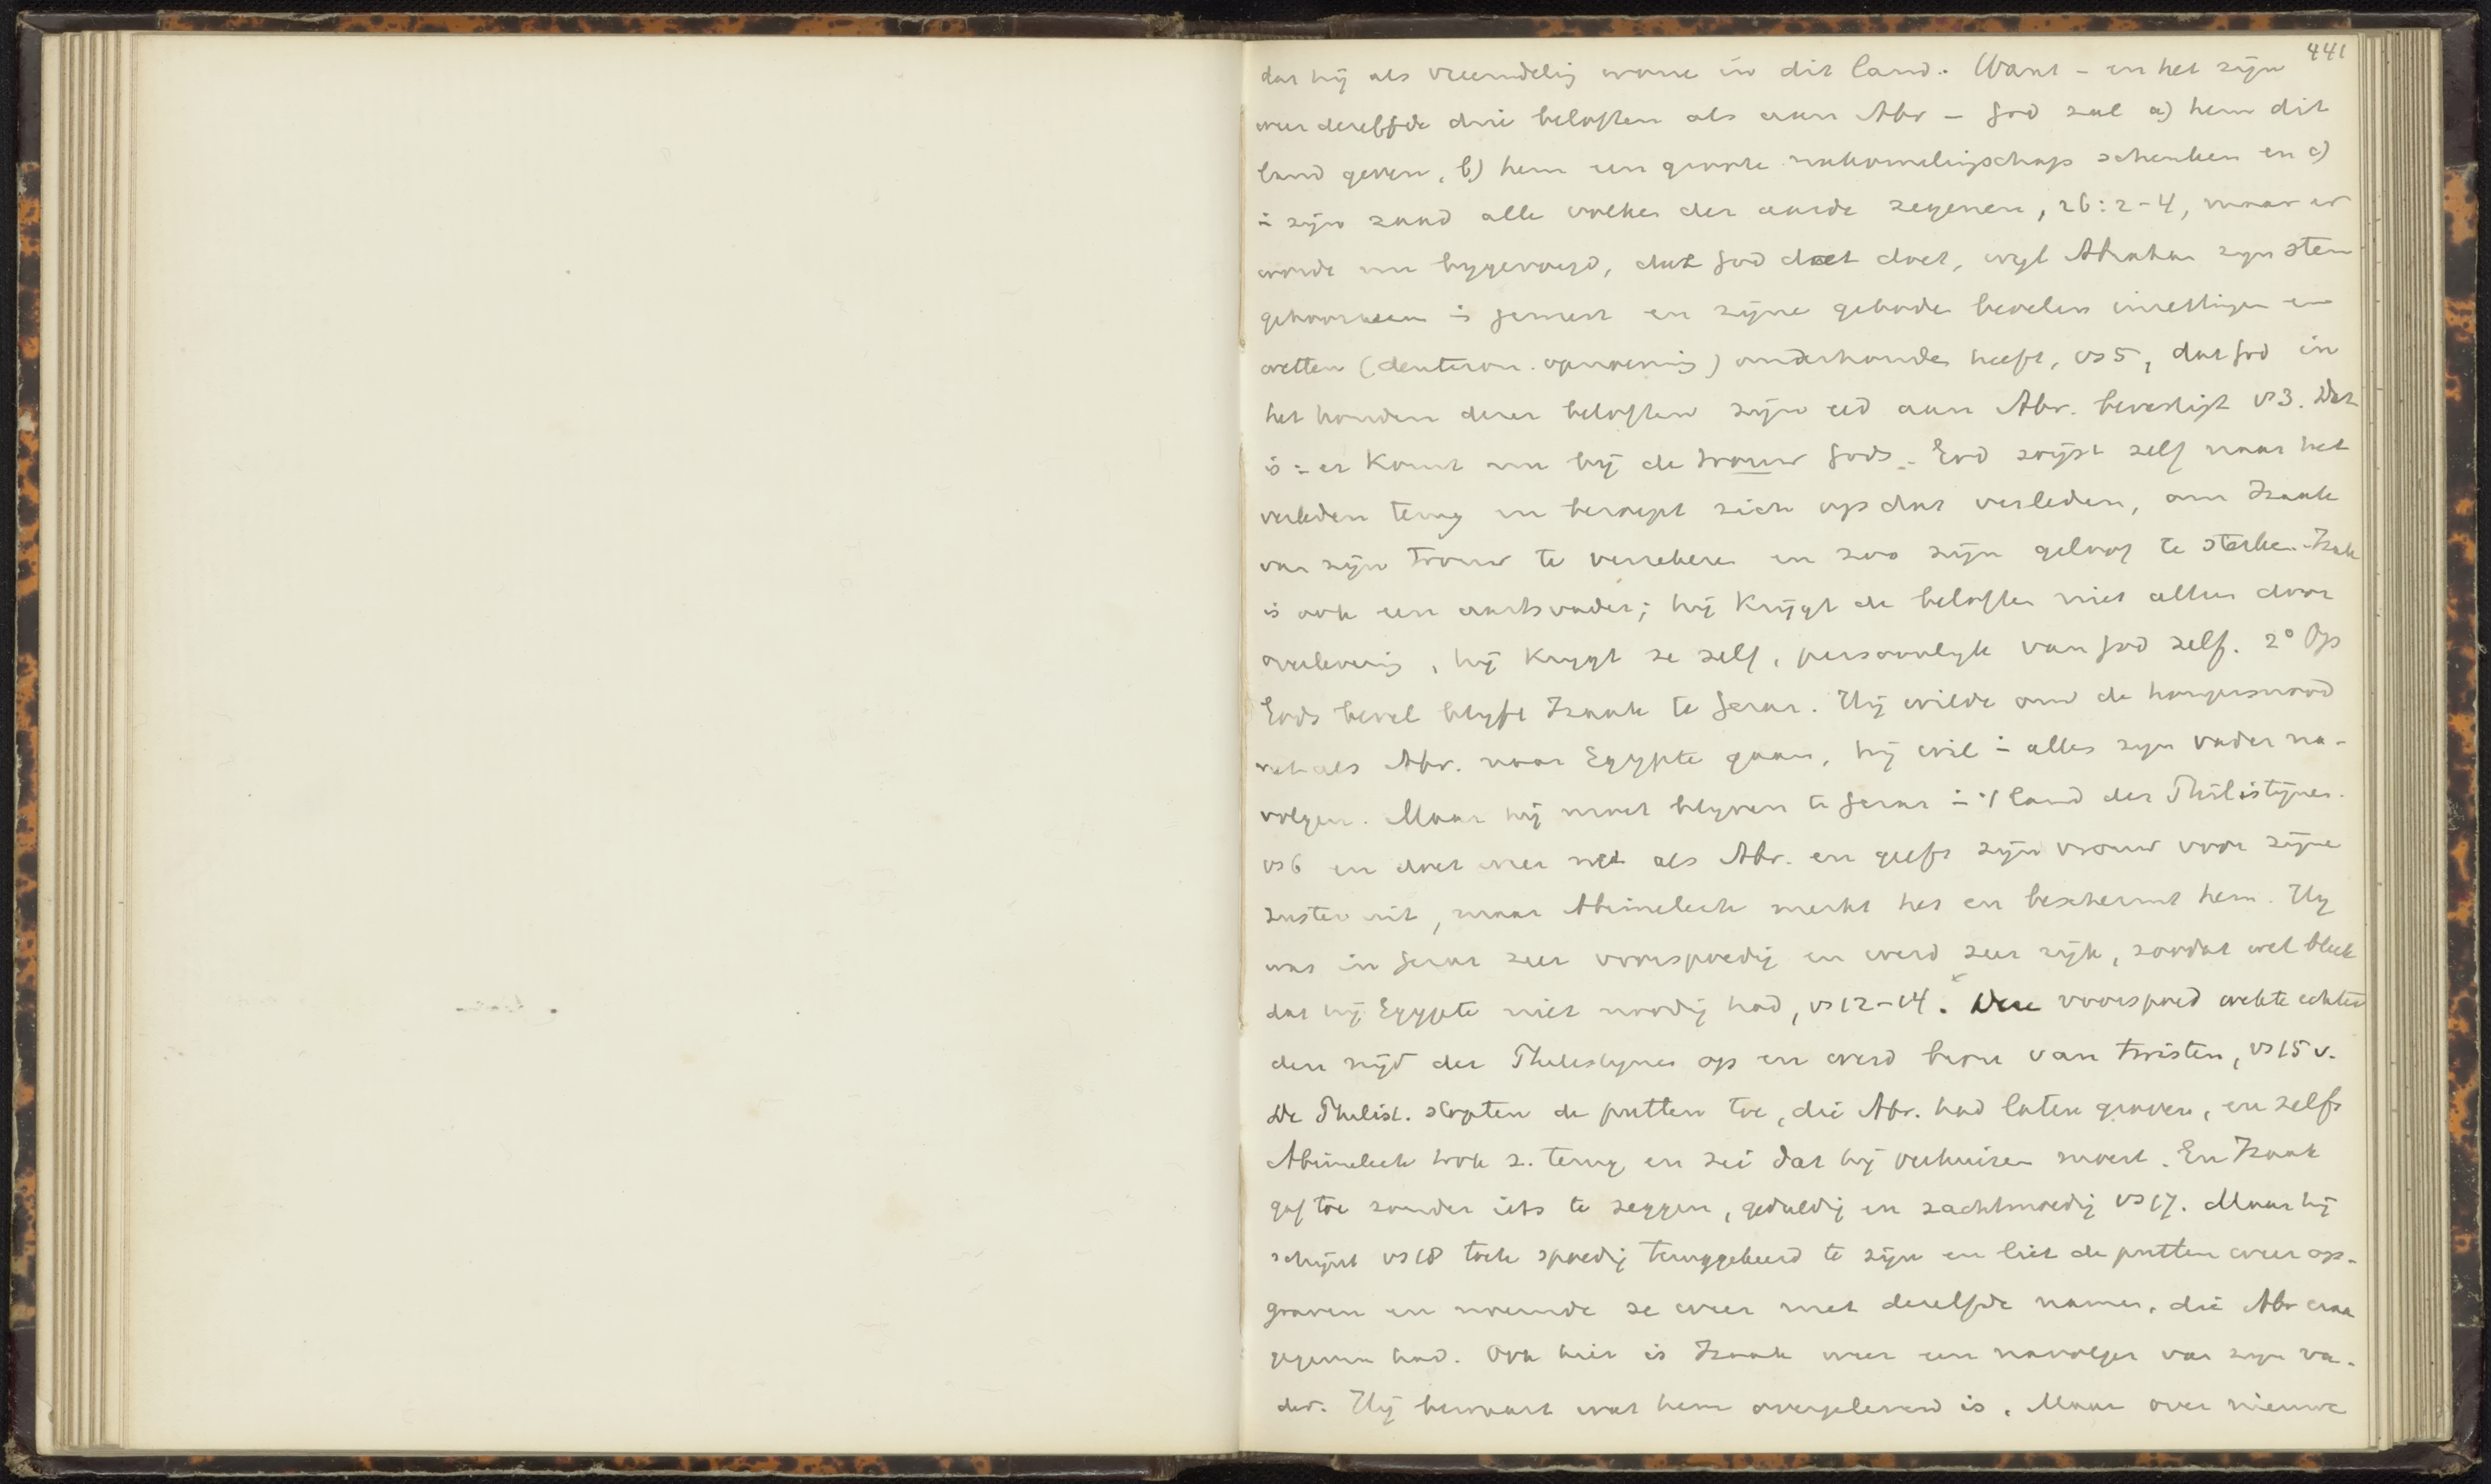 441
dat hij als vreemdeling wone in dit land. Want – en het zijn
weer dezelfde drie beloften als aan Abr – God zal a) hem dit
land geven, b) hem een groote nakomelingschap schenken en c)
in zijn zaad alle volken der aarde zegenen, 26:2-4, maar er
wordt nu bijgevoegd, dat God dat doet, wijl Abraham zijn stem
gehoorzaam is geweest en zijne geboden bevelen inzettingen en
wetten (deuteron. opnoeming) onderhouden heeft, vs 5, dat God in
het houden dezer beloften zijn eed aan Abr. bevestigt vs 3. Dat
is: er komt nu bij de trouw Gods. God wijst zelf naar het
verleden terug en beroept zich op dat verleden, om Izaak
van zijn trouw te verzekeren en zoo zijn geloof te sterken. Izak
is ook een aartsvader; hij krijgt de beloften niet alleen door
overlevering, hij krijgt ze zelf, persoonlijk van God zelf. 2° Op
Gods bevel blijft Izaak te Gerar. Hij wilde om de hongersnood
net als Abr. naar Egypte gaan, hij wil in alles zijn vader na-
volgen. Maar hij moet blijven te Gerar in 't land der Philistijnen.
vs 6 en doet weer net als Abr. en geeft zijn vrouw voor zijne
zuster uit, maar Abimelech merkt het en beschermt hem. Hij
was in Gerar zeer voorspoedig en werd zeer rijk, zoodat wel bleek
dat hij Egypte niet noodig had, vs 12-14. Deze voorspoed wekte echter
den nijd der Philistijnen op en werd bron van twisten, vs 15 v.
De Philist. stopten de putten toe, die Abr. had laten graven, en zelfs
Abimelech trok z. terug en zei dat hij verhuizen moest. En Izaak
gaf toe zonder iets te zeggen, geduldig en zachtmoedig vs 17. Maar hij
schijnt vs 18 toch spoedig teruggekeerd te zijn en liet de putten weer op-
graven en noemde ze weer met dezelfde namen, die Abr eraan
gegeven had. Ook hier is Izaak weer een navolger van zijn va-
der. Hij bewaart wat hem overgeleverd is. Maar over nieuwe